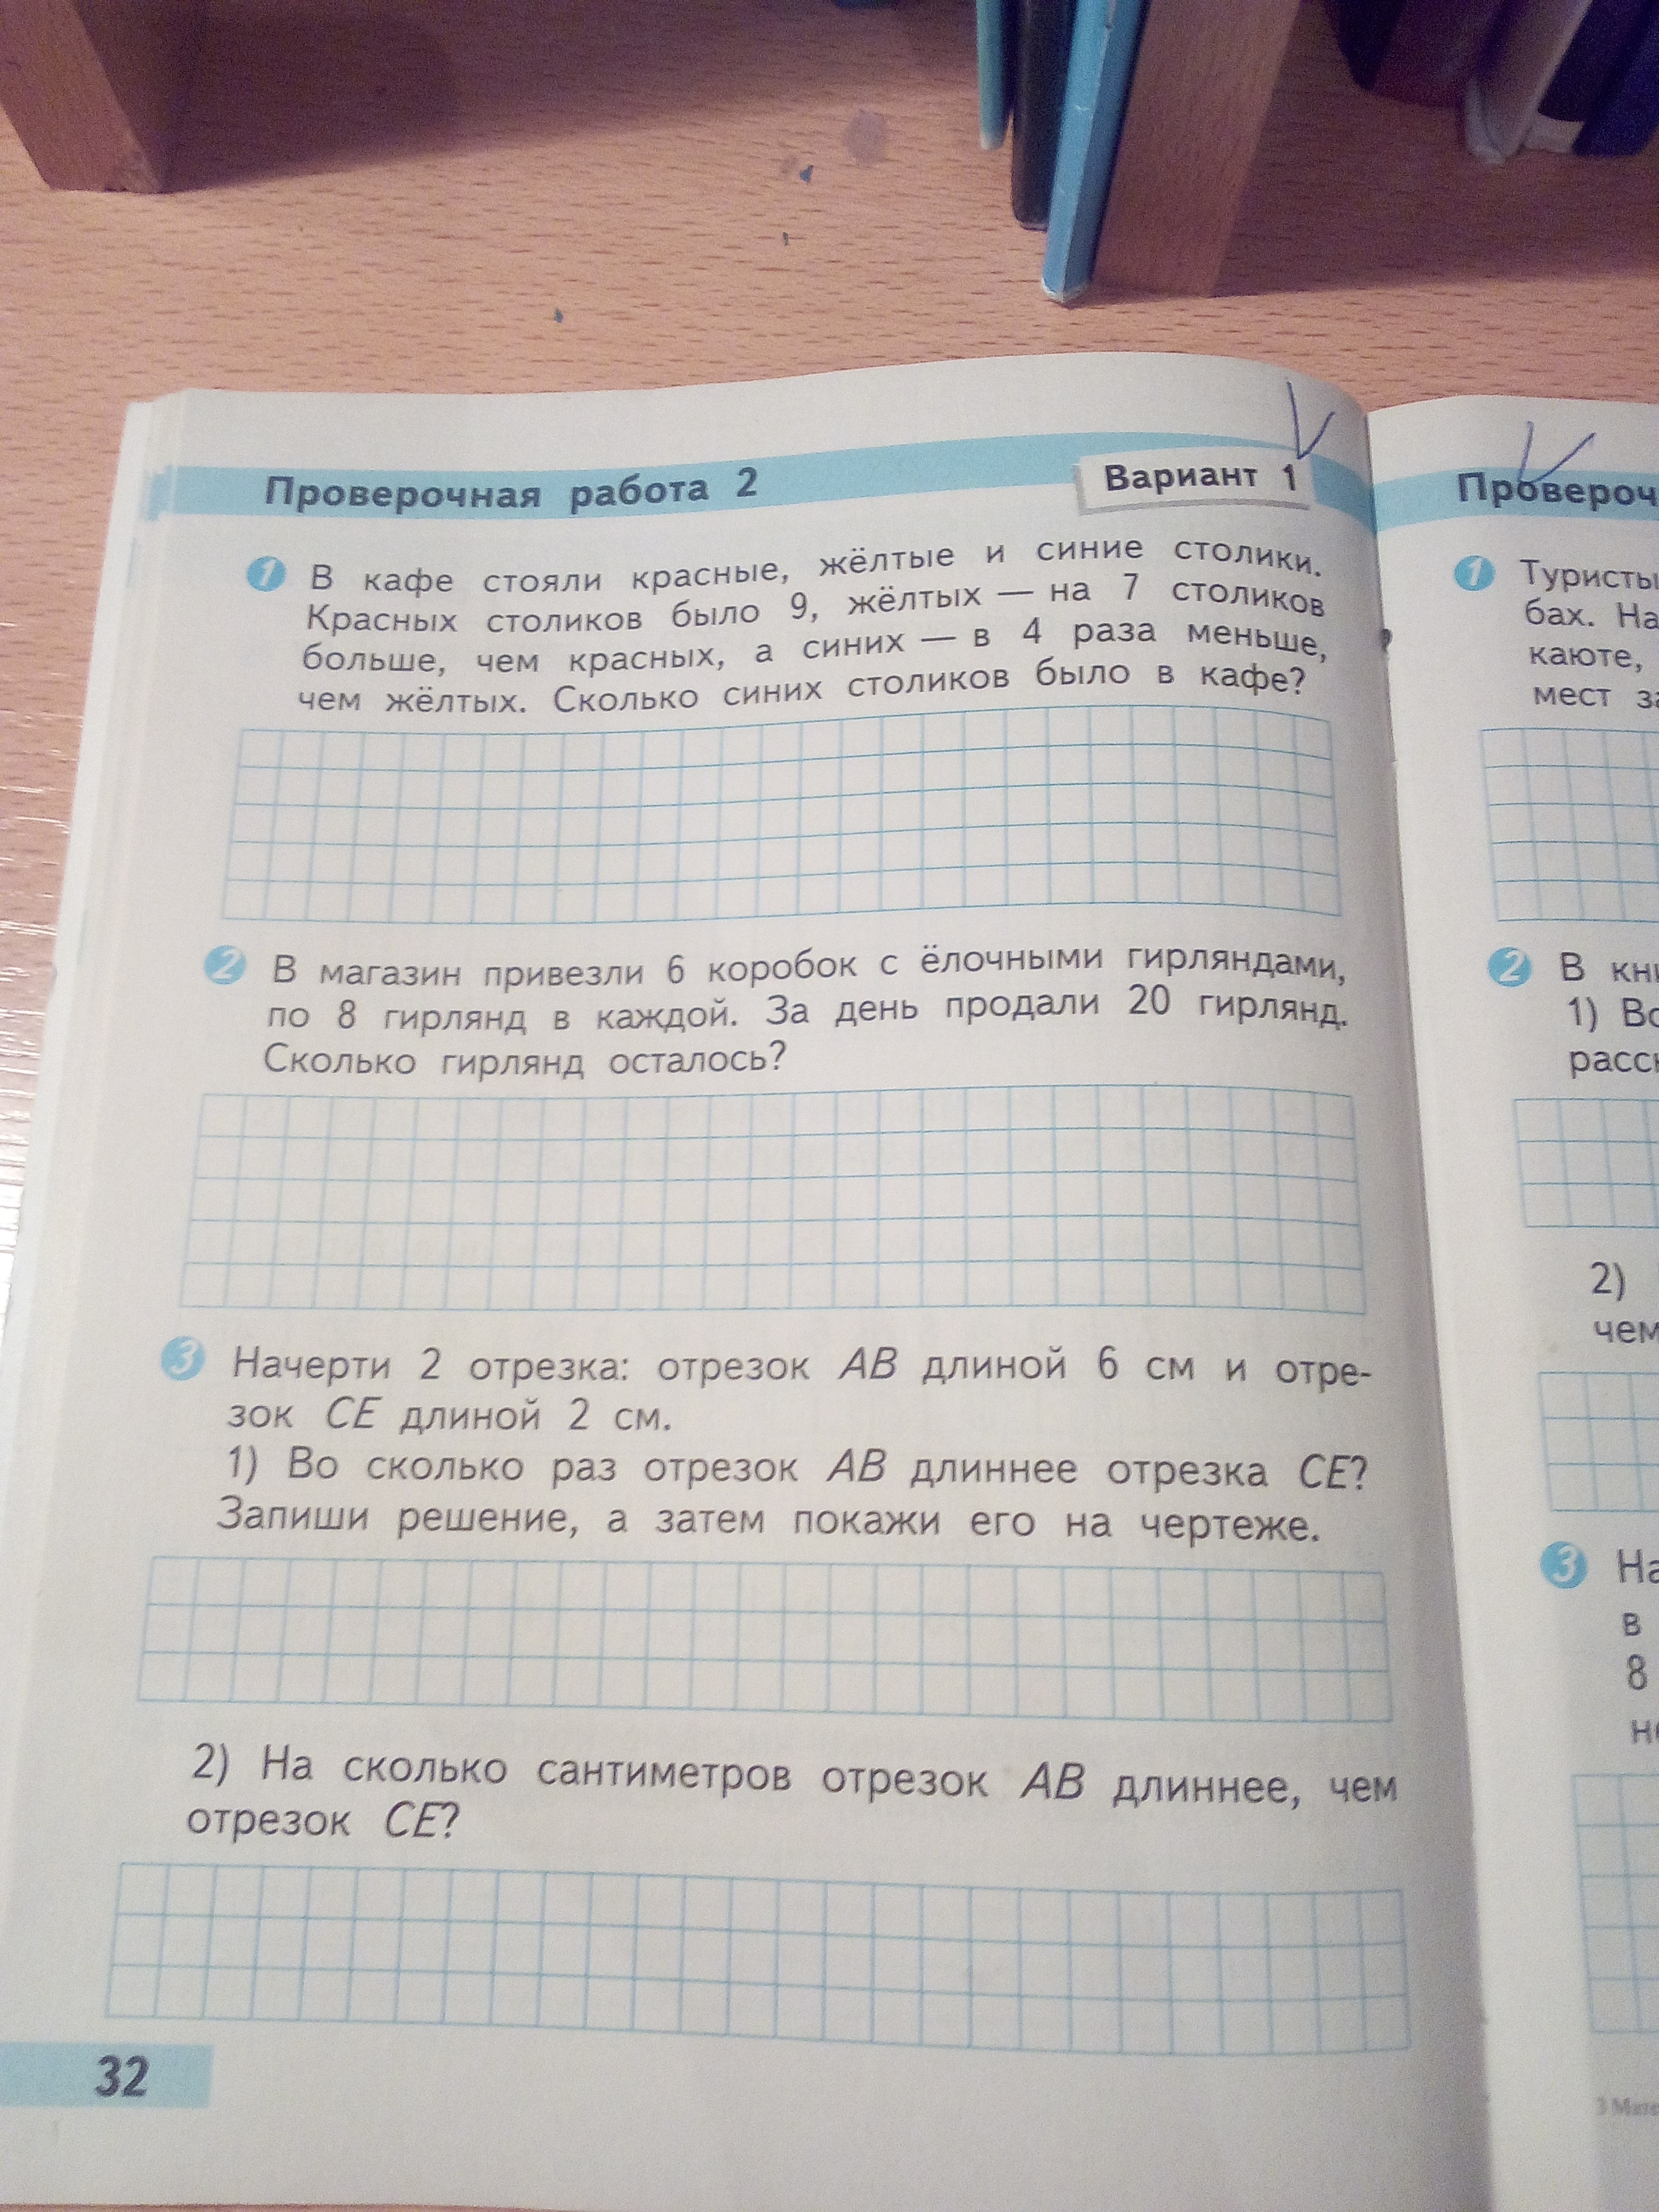 Проверочная работа 2
Вариант 1
1 В кафе стояли красные, жёлтые и синие столики.
Красных столиков было 9, жёлтых — на 7 столиков
больше, чем красных, а синих — в 4 раза меньше,
чем жёлтых. Сколько синих столиков было в кафе?
2 В магазин привезли 6 коробок с ёлочными гирляндами,
по 8 гирлянд в каждой. За день продали 20 гирлянд.
Сколько гирлянд осталось?
3 Начерти 2 отрезка: отрезок AB длиной 6 см и отре-
зок CE длиной 2 см.
1) Во сколько раз отрезок AB длиннее отрезка CE?
Запиши решение, а затем покажи его на чертеже.
2) На сколько сантиметров отрезок AB длиннее, чем
отрезок CE?
32
Провероч
1 Туристы
бах. На
каюте,
мест
2 В
1)
2)
чем
3
в
8